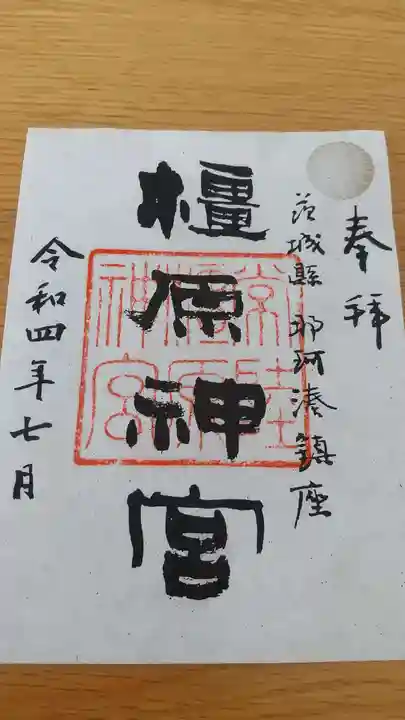 奉拝
茨城縣 那珂湊鎮座
橿原神宮
常陸
橿原
神宮
令和四年七月